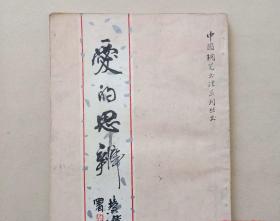 中國鋼筆書法系列叢書
愛的思辨